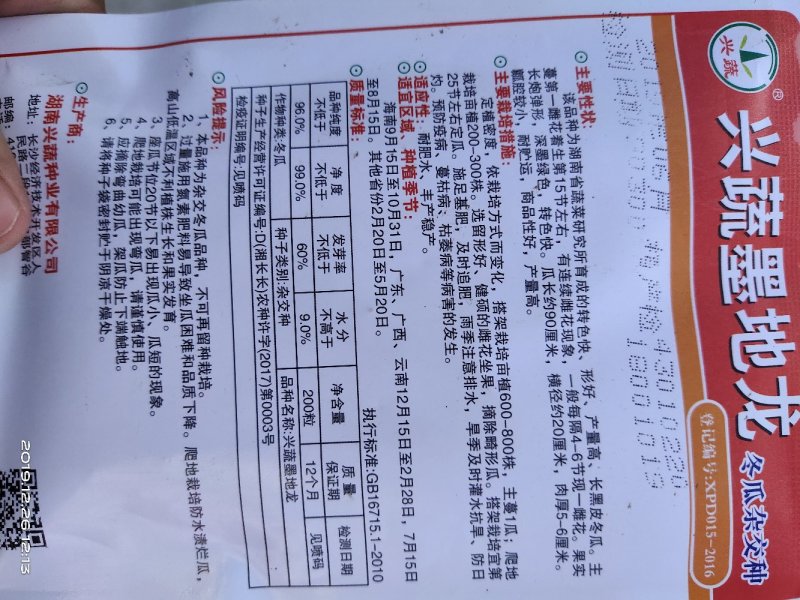 兴蔬
®
兴蔬墨地龙
冬瓜杂交种
登记编号:XPD015-2016
主要性状:
该品种为湖南省蔬菜研究所育成的转色快、形好、产量高、长黑皮冬瓜。主
蔓第一雌花着生第15节左右，有连续雌花现象，一般每隔4-6节现一雌花。果实
长炮弹形，深墨绿色，转色快。瓜长约90厘米，横径约20厘米，肉厚5-6厘米。
瓤腔较小，耐贮运，商品性好，产量高。
主要栽培措施:
定植密度，依栽培方式而变化，搭架栽培亩植600-800株，主蔓1瓜；爬地
栽培亩植200-300株。选留形好、健硕的雌花坐果，摘除畸形瓜。搭架栽培宜第
25节左右定瓜。施足基肥，及时追肥，雨季注意排水，旱季及时灌水抗旱。防日
灼。预防疫病、蔓枯病、枯萎病等病害的发生。
适应性: 耐肥水，丰产稳产。
适宜区域、种植季节:
海南9月15日至10月31日，广东、广西、云南12月15日至2月28日，7月15日
至8月15日。其他省份2月20日至5月20日。
质量标准: 执行标准:GB16715.1-2010
品种纯度不低于 净度不低于 发芽率不低于 水分不高于 净含量 质量保证期 检测日期
96.0% 99.0% 60% 9.0% 200粒 12个月 见喷码
作物种类:冬瓜 种子类别:杂交种 品种名称:兴蔬墨地龙
种子生产经营许可证编号:D(湘长长)农种许字(2017)第0003号
检疫证明编号:见喷码
风险提示:
1、本品种为杂交冬瓜品种，不可再留种栽培。
2、过量施用氮素肥料易导致坐瓜困难和品质下降。爬地栽培防水渍烂瓜，
高山低温区域不利植株生长和果实发育。
3、座瓜节位20节以下易出现瓜小、瓜短的现象。
4、爬地栽培可能出现弯瓜，请谨慎使用。
5、应摘除弯曲幼瓜，架瓜防止下端触地。
6、请将种子袋密封贮于阴凉干燥处。
生产商:
湖南兴蔬种业有限公司
地址: 长沙经济技术开发区人
民路二
邮编: 4
2019/12/26 12:13